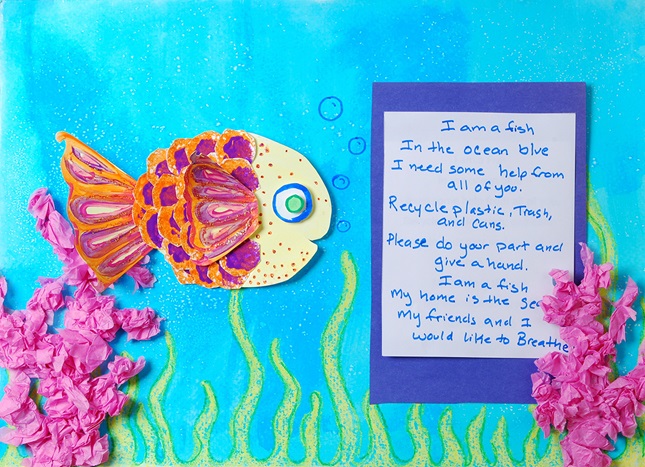 I am a fish
In the ocean blue
I need some help from
all of you.
Recycle plastic, Trash,
and cans.
Please do your part and
give a hand.
I am a fish
My home is the sea
My friends and I
would like to Breathe